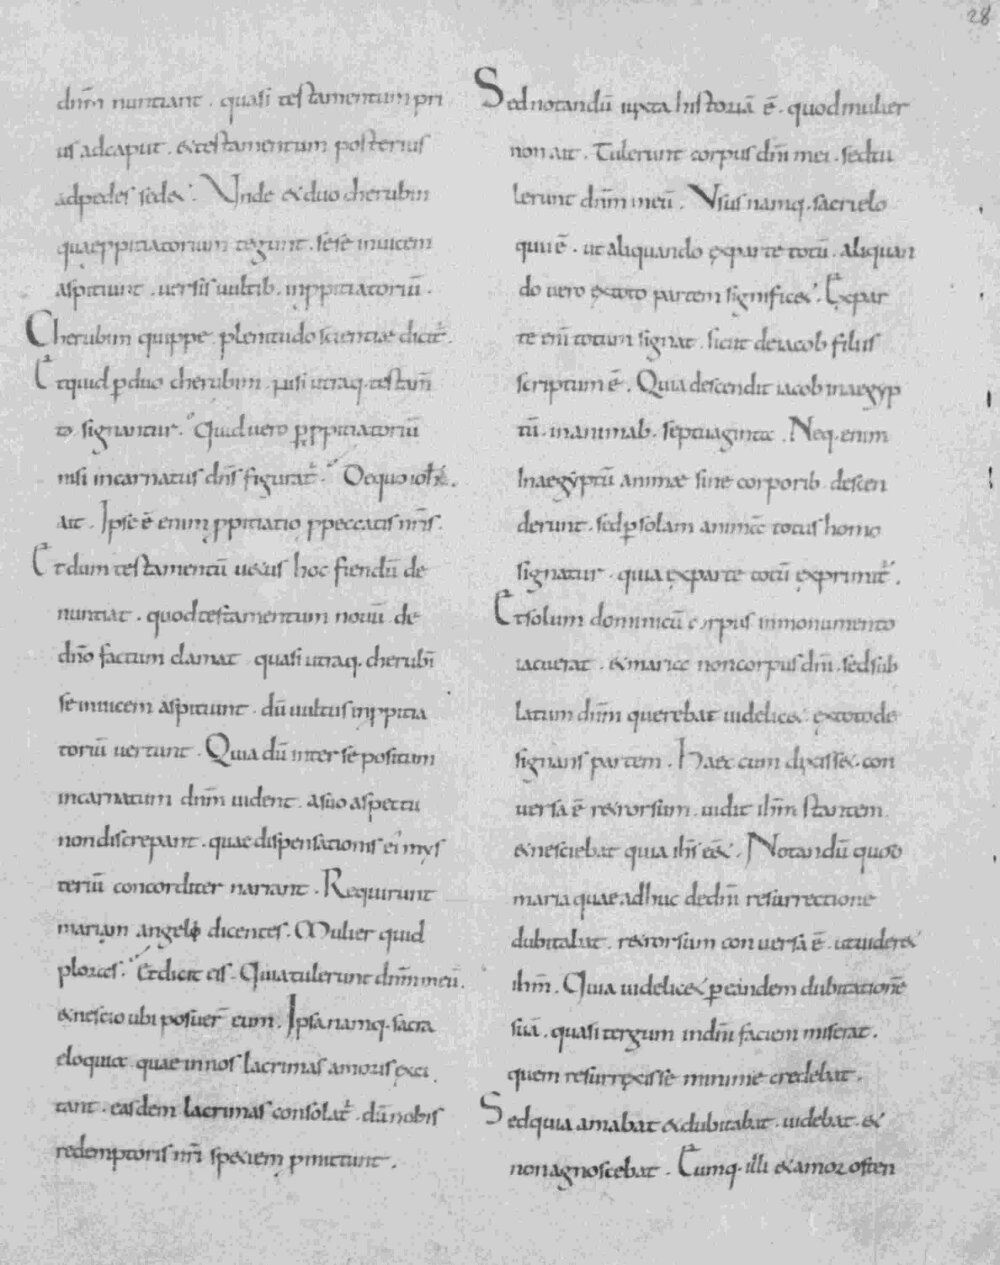 28
dn̄m nuntiant. quasi testamentum pri
us adcaput. &testamentum posterius
adpedes sed&. Unde &duo cherubin
quaeppitiatorium tegunt. sese inuicem
aspitiunt. uersis uultib. inppitiatoriū.
Cherubim quippe plenitudo scientiae dicit᷑.
Et quid ꝑduo cherubim. nisi utraq. testam̄
to signantur. Quid uero ꝑppitiatoriū
nisi incarnatus dn̄s figurat᷑. Dequo ioh̄s.
ait. Ipse ē enim ppitiatio ppeccatis nr̄is.
Et dum testamentū u&us hoc fiendū de
nuntiat. quod testamentum nouū de
dn̄o factum clamat quasi utraq. cherubī
se inuicem aspitiunt. dū uultus inppitia
toriū uertunt. Quia dū inter se positum
incarnatum dn̄m uident. asuo aspectu
non discrepant. quae dispensationis ei mys
teriū concorditer narrant. Requirunt
mariam angeli dicentes. Mulier quid
ploras. Et dicit eis. Quia tulerunt dn̄m meū.
&nescio ubi posuer̄ eum. Ipsa namq. sacra
eloquia quae in nos lacrimas amoris exci
tant. easdem lacrimas consolat᷑. dū nobis
redemptoris nr̄i speciem pmittunt.
Sed notandū iuxta historiā ē. quod mulier
non ait. Tulerunt corpus dn̄i mei. sed tu
lerunt dn̄m meū. Usus namq. sacri elo
quii ē. ut aliquando exparte totū. aliquan
do uero extoto partem signific&. Expar
te eni totum signat. sicut deiacob filiis
scriptum ē. Quia descendit iacob inaegyp
tū. in animab. septuaginta. Neq. enim
Inaegyptū animae sine corporib. descen
derunt. sed ꝑ solam animā totus homo
signatur. quia exparte totū exprimit᷑.
Et solum dominicū corpus inmonumento
iacuerat. &maria non corpus dn̄i. sed sub
latum dn̄m querebat uidelic& extoto de
signans partem. Haec cum dixiss&. con
uersa ē r&rorsum. uidit ih̄m stantem.
&nesciebat quia ih̄s ess&. Notandū quod
maria quae adhuc dedn̄i resurrectione
dubitabat. r&rorsum conuersa ē. ut uider&
ih̄m. Quia uidelic& ꝑ eandem dubitationē
suā. quasi tergum indn̄i faciem miserat.
quem resurrexisse minime credebat.
Sed quia amabat &dubitabat. uidebat. &
non agnoscebat. Eumq. illi &amor osten